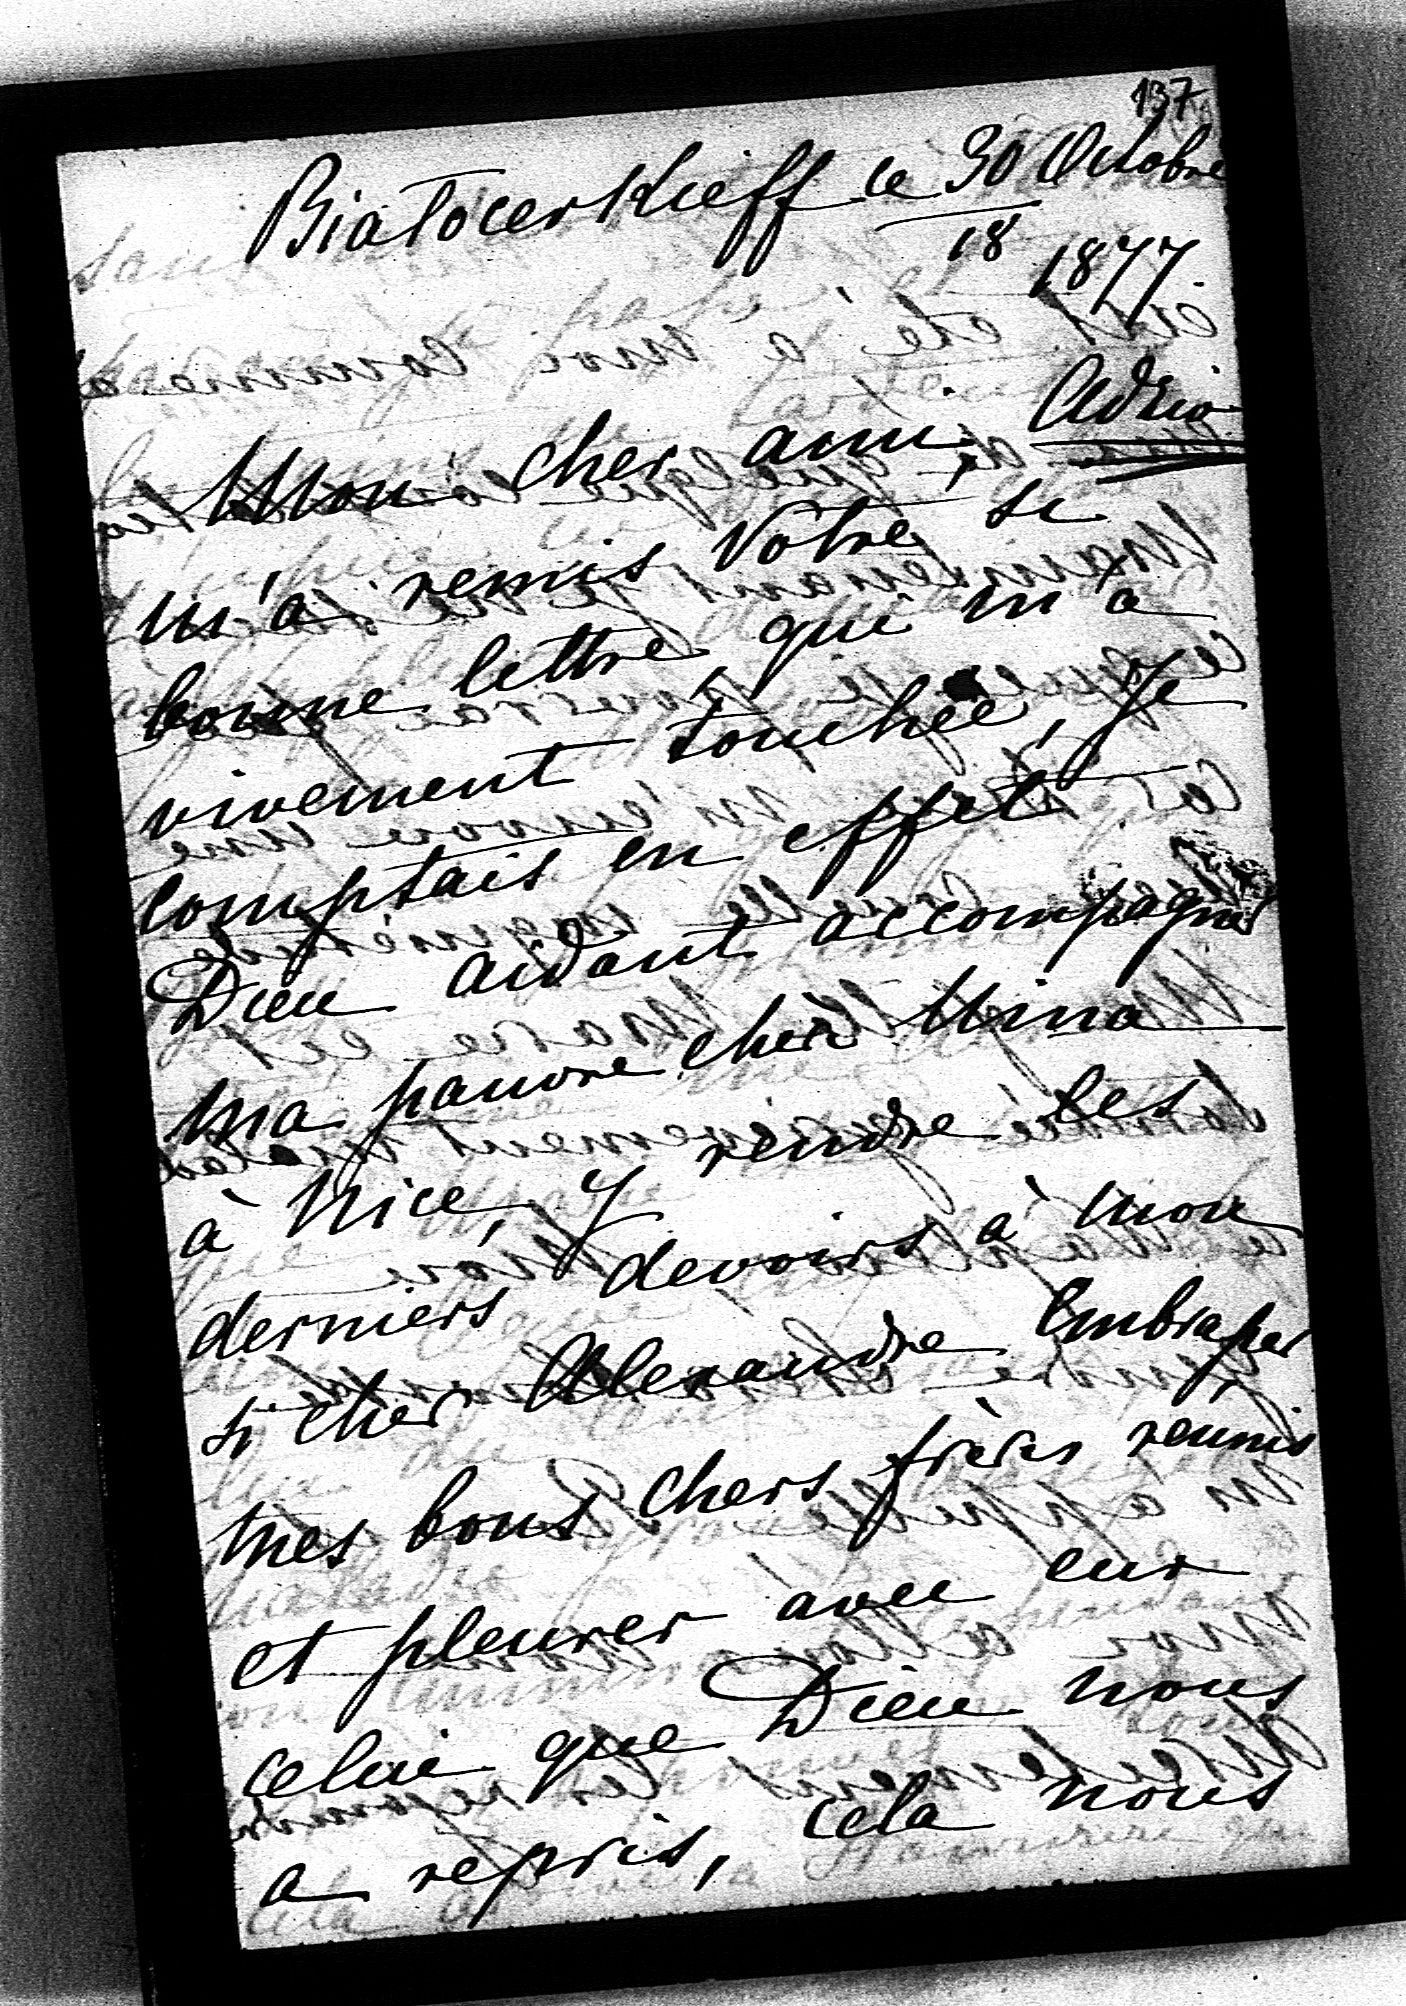 137
Biatocerkieff ce 30 Octobre
18 1877.
Mon cher ami, Adzio
m'a remis Votre si
bonne lettre qui m'a
vivement touchée, Je
comptais en effet
Dieu aidant accompagner
ma pauvre cher Mina
à Nice, y rendre les
derniers devoirs à mon
si cher Alexandre Embrasser
mes bons chers frères réunis
et pleurer avec eux
celui que Dieu nous
a repris, cela nous